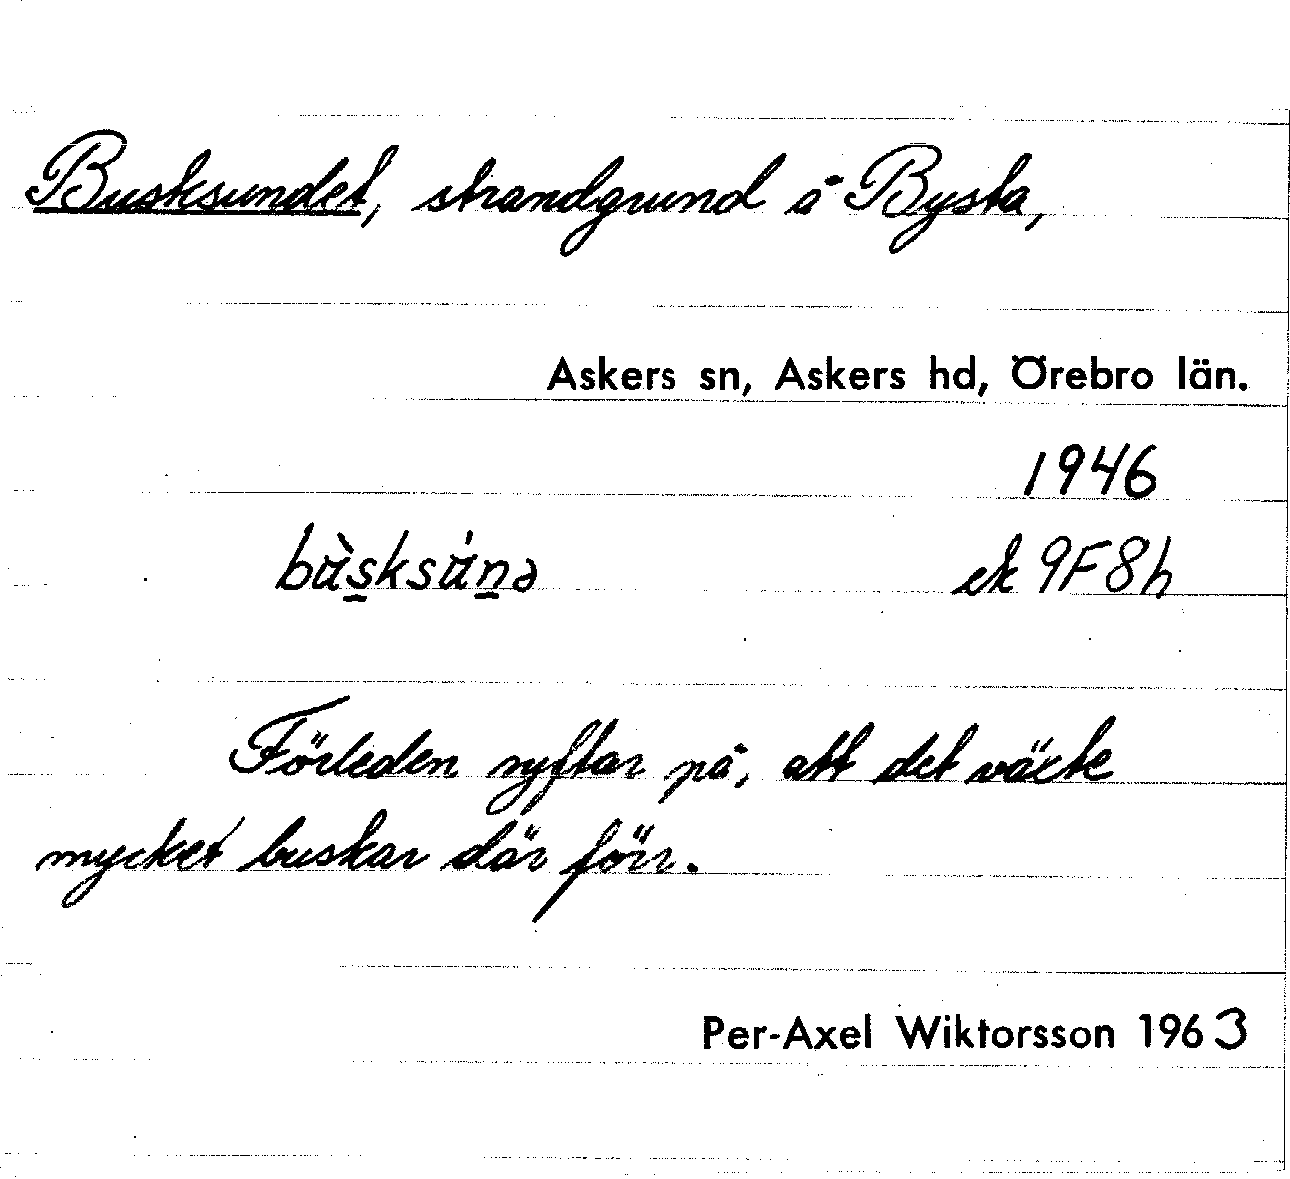 Busksundet, strandgrund å Bysta,
Askers sn, Askers hd, Örebro län.
1946
bu̇̀sksu̇́nə ek 9F8h
Förleden syftar på, att det växte
mycket buskar där förr.
Per-Axel Wiktorsson 1963